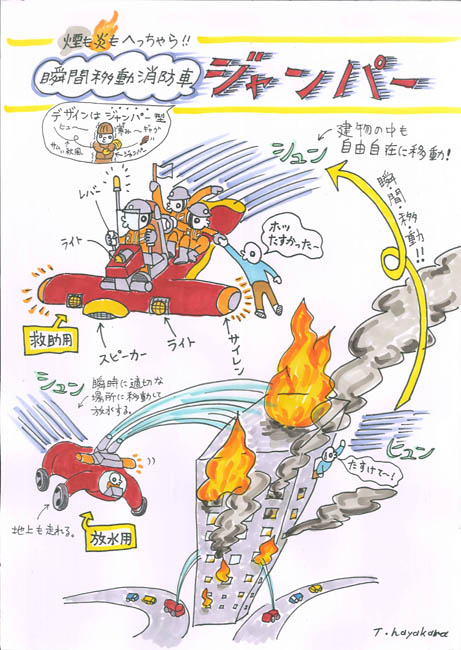 煙も炎もへっちゃら!!
瞬間移動消防車
ジャンパー
デザインはジャンパー型
ヒュー
サムい秋風
ジャンパー
レバー
ライト
シュン
建物の中も
自由自在に移動!
瞬間・移・動!!
ホッ
たすかった〜
救助用
スピーカー
ライト
サイレン
シュン
瞬時に適切な
場所に移動して
放水する。
ヒュン
たすけて〜!
地上も走れる。
放水用
T.hayakawa